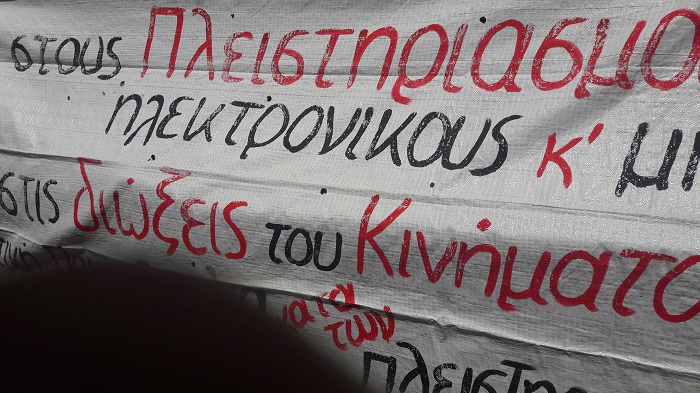 στους Πλειστηριασμο
ηλεκτρονικους κ' μη
στις διώξεις του Κινήματο
κατα
των
πλειστη